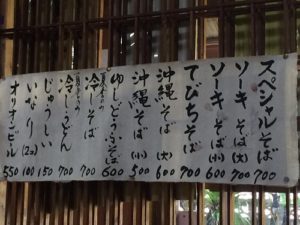 スペシャルそば 700
ソーキそば(大) 700
ソーキそば(小) 600
てびちそば 700
沖縄そば(大) 600
沖縄そば(小) 500
ゆしどうふそば 600
冷しそば 700
冷しうどん 700
じゅうしい 150
いなり(2コ) 100
オリオンビール 550